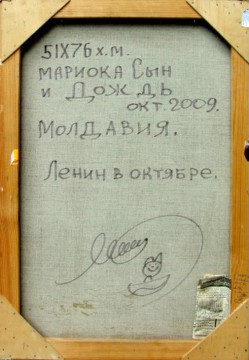 51X76 х.м.
МАРИОКА СЫН
и ДОЖДЬ
окт. 2009.
МОЛДАВИЯ.
ЛЕНИН В ОКТЯБРЕ.